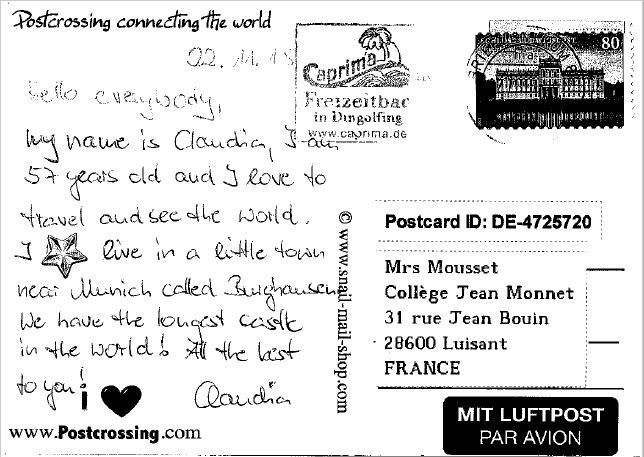 Postcrossing connecting the world
02.11.15
Hello everybody,
my name is Claudia, I am
57 years old and I love to
travel and see the world.
I live in a little town
near Munich called Burghausen
We have the longest castle
in the world! All the best
to you!
Claudia
www.Postcrossing.com
Caprima
Freizeitbad
in Dingolfing
www.caprima.de
80
© www.snail-mail-shop.com
Postcard ID: DE-4725720
Mrs Mousset
Collège Jean Monnet
31 rue Jean Bouin
28600 Luisant
FRANCE
MIT LUFTPOST
PAR AVION